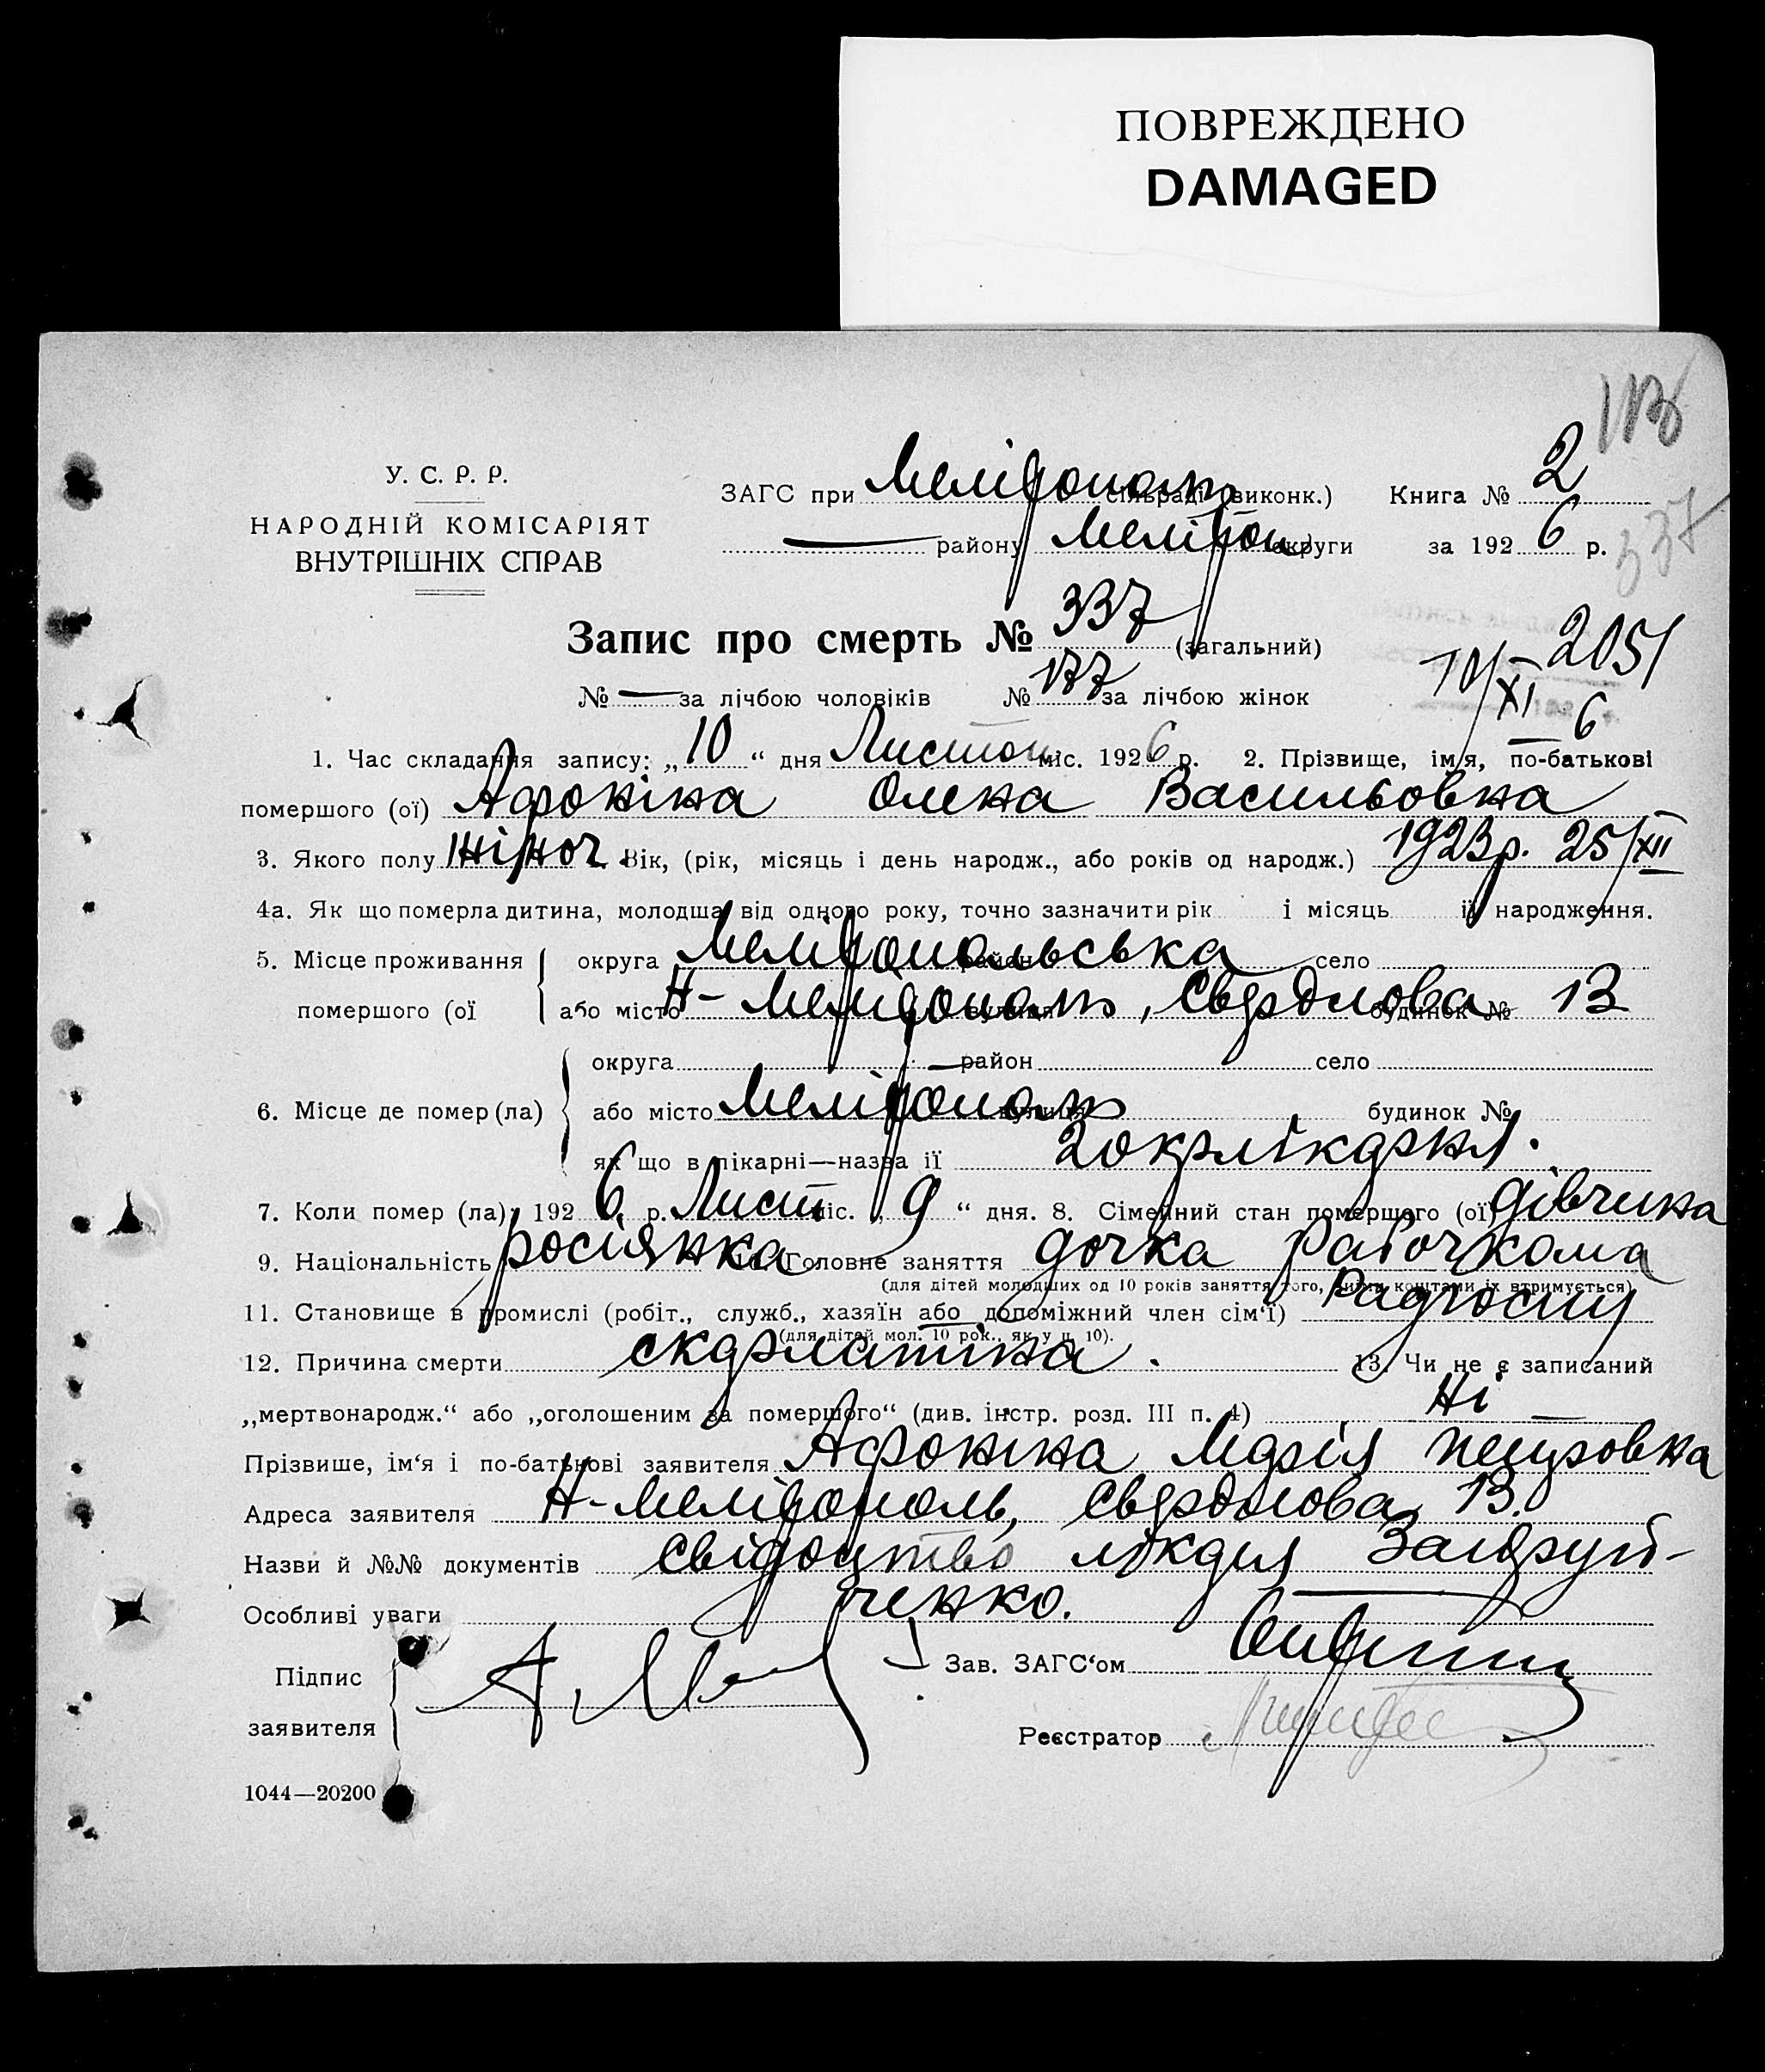 ПОВРЕЖДЕНО
DAMAGED
У. С. Р. Р.
НАРОДНІЙ КОМІСАРІЯТ
ВНУТРІШНІХ СПРАВ
ЗАГС при Меліто­поль сільраді (виконк.) Книга № 2
— району Мелітоп округи за 1926 р.
337
Запис про смерть № 337 (загальний)
№ — за лічбою чоловіків № 177 за лічбою жінок
2051
1. Час складання запису: „10“ дня Листоп міс. 1926 р. 2. Прізвище, ім'я, по-батькові
помершого (ої) Афоніна Олена Васильовна
3. Якого полу жіноч Вік, (рік, місяць і день народж., або років од народж.) 1923р. 25/XII
4а. Як що померла дитина, молодша від одного року, точно зазначити рік і місяць її народження.
5. Місце проживання помершого (ої
округа Мелітопольська район село
або місто Н-Мелітополь, вулиця Свердлова будинок № 13
6. Місце де помер (ла)
округа — район село
або місто Мелітополь вулиця будинок №
як що в лікарні—назва її 2 окрлікарня.
7. Коли помер (ла): 1926 р. Лист міс. „9“ дня. 8. Сімейний стан помершого (ої) дівчина
9. Національність росіянка Головне заняття дочка рабочкома
(для дітей молодших од 10 років заняття того, чиїми коштами їх втримується)
11. Становище в промислі (робіт., служб., хазяїн або допоміжний член сім'ї) Радгоспу
(для дітей мол. 10 рок., як у п. 10).
12. Причина смерти скарлатіна. 13. Чи не є записаний
„мертвонародж.“ або „оголошеним за помершого“ (див. інстр. розд. III п. 4) Ні —
Прізвише, ім'я і по-батькові заявителя Афоніна Марія Петровна
Адреса заявителя Н-Мелітополь, Свердлова 13.
Назви й №№ документів Свідоцтво лікаря
Особливі уваги ченко.
Підпис заявителя
Зав. ЗАГС'ом
Реєстратор
1044—20200